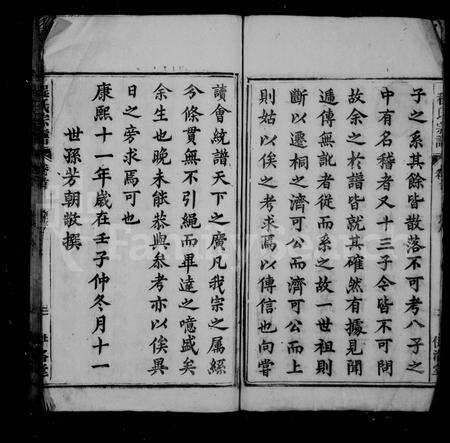 子之系其餘皆散落不可考八子之
中有名稽者又十三子今皆不可問
故余之於譜皆就其確然有據見聞
遞傳無訛者從而系之故一世祖則
斷以遷桐之濟可公而濟可公而上
則姑以俟之考求焉以傳信也向嘗
讀會統譜天下之廣凡我宗之屬縣
今條貫無不引繩而畢達之噫盛矣
余生也晚未能恭與叅考亦以俟異
日之旁求焉可也
康熙十一年歲在壬子仲冬月十一
世孫芳朝敬撰